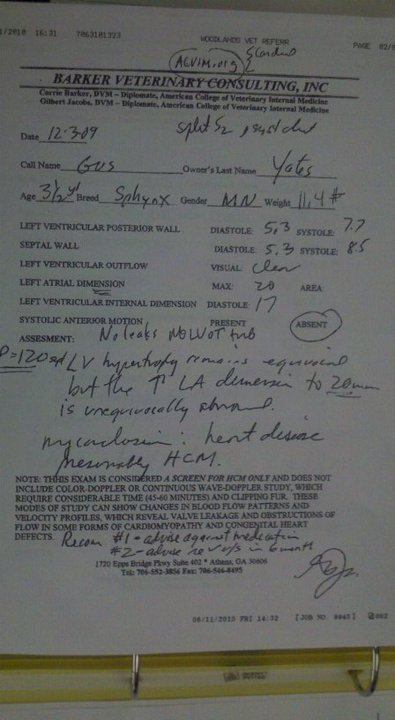 1/2010 16:31 7063101323 WOODLANDS VET REFERR PAGE 02/
ACVIM.org
BARKER VETERINARY CONSULTING, INC
Carrie Barker, DVM – Diplomate, American College of Veterinary Internal Medicine
Gilbert Jacobs, DVM – Diplomate, American College of Veterinary Internal Medicine
split S2
Date 12-3-09
Call Name Gus Owner's Last Name Yates
Age 3½ yr Breed Sphynx Gender MN Weight 11.4 #
LEFT VENTRICULAR POSTERIOR WALL DIASTOLE: 5.3 SYSTOLE: 7.7
SEPTAL WALL DIASTOLE: 5.3 SYSTOLE: 8.5
LEFT VENTRICULAR OUTFLOW VISUAL: Clear
LEFT ATRIAL DIMENSION MAX: 20 AREA:
LEFT VENTRICULAR INTERNAL DIMENSION DIASTOLE: 17
SYSTOLIC ANTERIOR MOTION PRESENT ABSENT
ASSESMENT: No leaks No LVOT turb
P=120 LV hypertrophy remains equivocal
but the ↑ LA dimension to 20mm
is unequivocally abnormal.
my conclusion: heart disease
presumably HCM.
NOTE: THIS EXAM IS CONSIDERED A SCREEN FOR HCM ONLY AND DOES NOT
INCLUDE COLOR-DOPPLER OR CONTINUOUS WAVE-DOPPLER STUDY, WHICH
REQUIRE CONSIDERABLE TIME (45-60 MINUTES) AND CLIPPING FUR. THESE
MODES OF STUDY CAN SHOW CHANGES IN BLOOD FLOW PATTERNS AND
VELOCITY PROFILES, WHICH REVEAL VALVE LEAKAGE AND OBSTRUCTIONS OF
FLOW IN SOME FORMS OF CARDIOMYOPATHY AND CONGENITAL HEART
DEFECTS. Recom #1 - advise against medication
#2 - advise in 6 month
1720 Epps Bridge Pkwy Suite 402 * Athens, GA 30606
Tel: 706-552-3856 Fax: 706-546-8495
06/11/2010 FRI 14:32 [JOB NO. 8943] 002